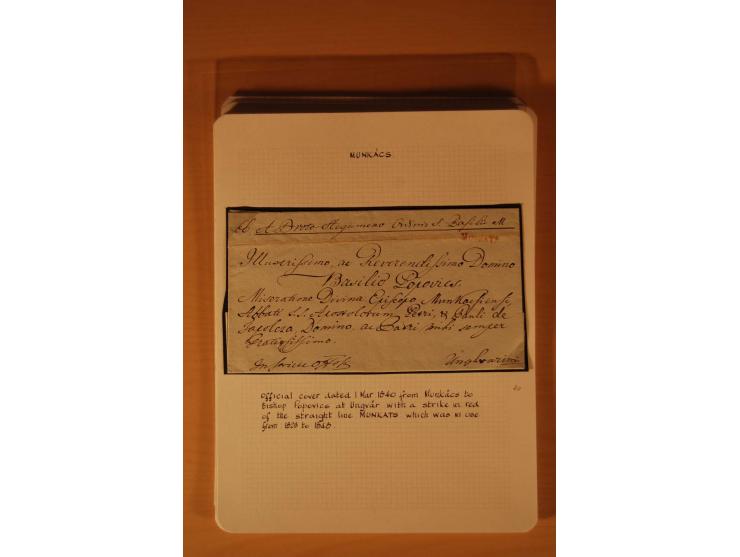 MUNKÁCS
A Proto-Hegumeno Ordinis S. Basilii M
MUNKATS
Illustrissimo, ac Reverendissimo Domino
Basilio Popovics
Miseratione Divina Episcopo Munkacsiensi,
Abbati S.S. Apostolorum Petri, & Pauli de
Tapolcza, Domino, ac Patri mihi semper
Gratiosissimo.
Unghvarini
Official cover dated 1 Mar 1840 from Munkács to
Bishop Popovics at Ungvár with a strike in red
of the straight line MUNKATS which was in use
from 1828 to 1845